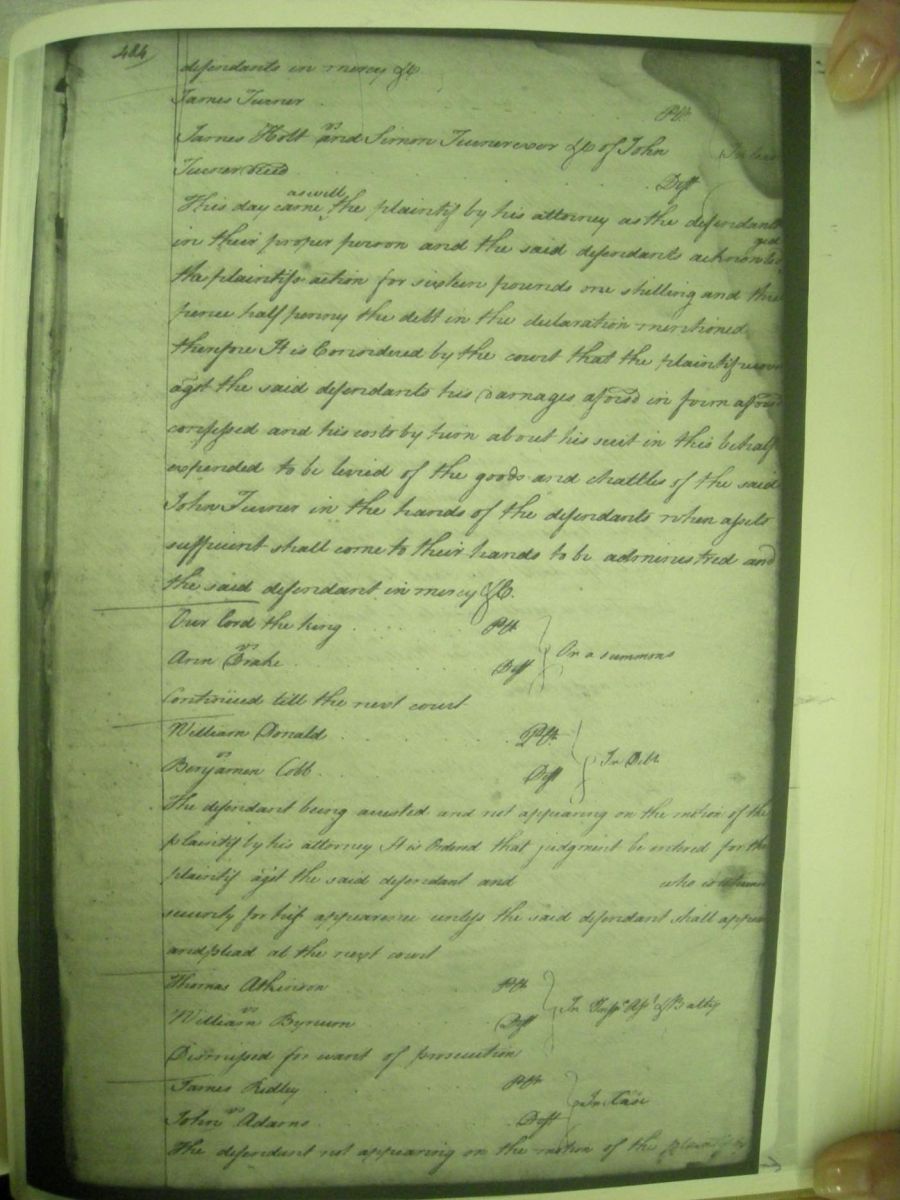 484
defendants in mercy &c
James Turner Plt.
vs
James Holt and Simon Turner exor &c of John In
Turner deced Deft
as well
This day came the plaintif by his attorney as the defendants
in their proper person and the said defendants acknowled
ged
the plaintifs action for sixteen pounds one shilling and three
pence half penny the debt in the declaration mentioned
therefore It is Considered by the court that the plaintif recover
agst the said defendants his damages aforsd in form aforsd
confessed and his costs by him about his suit in this behalf
expended to be levied of the goods and chattles of the said
John Turner in the hands of the defendants when assets
sufficient shall come to their hands to be administred and
the said defendant in mercy &C.
Our Lord the king Plt.
vs On a summons
Ann Drake Deft
Continued till the next court
William Donald Plt.
vs In Debt
Benjamen Cobb Deft
The defendant being arrested and not appearing on the motion of the
plaintif by his attorney It is Ordered that judgment be entered for the
plaintif agst the said defendant and who is returned
security for his appearence unless the said defendant shall appear
and plead at the next court
Thomas Atkinson Plt.
vs In Trespc Asst & Battry
William Bynum Deft
Dismissed for want of prosecution
James Ridley Plt.
vs In Case
John Adams Deft
The defendant not appearing on the motion of the plaintif